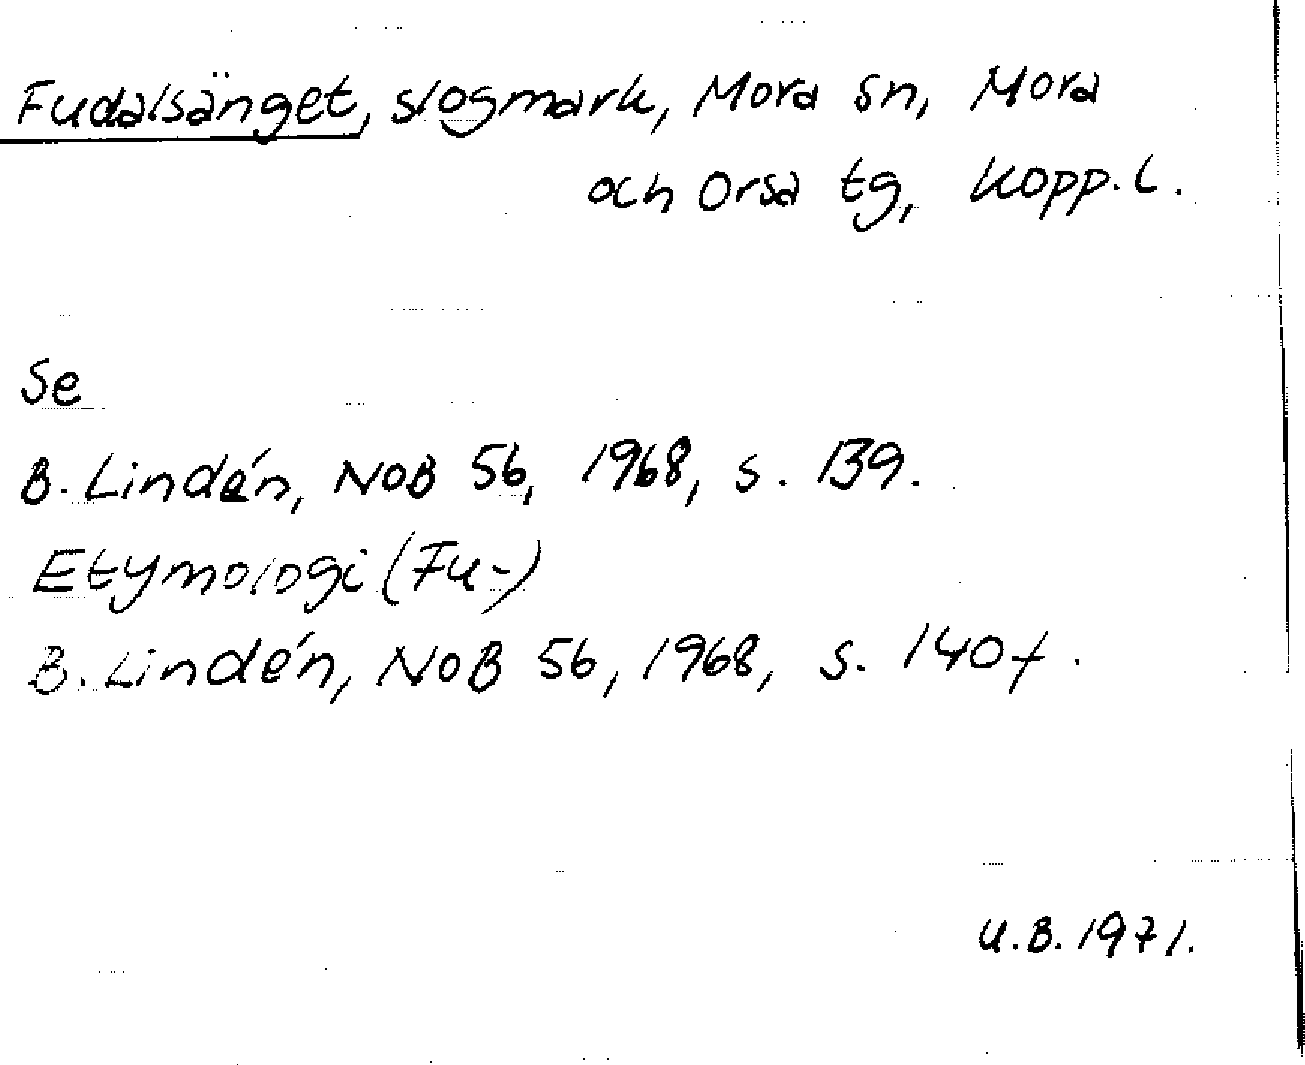 Fudalsänget, slogmark, Mora sn, Mora
och Orsa tg, Kopp. l.
Se
B. Lindén, NoB 56, 1968, s. 139.
Etymologi (Fu-)
B. Lindén, NoB 56, 1968, s. 140 f.
U.B. 1971.